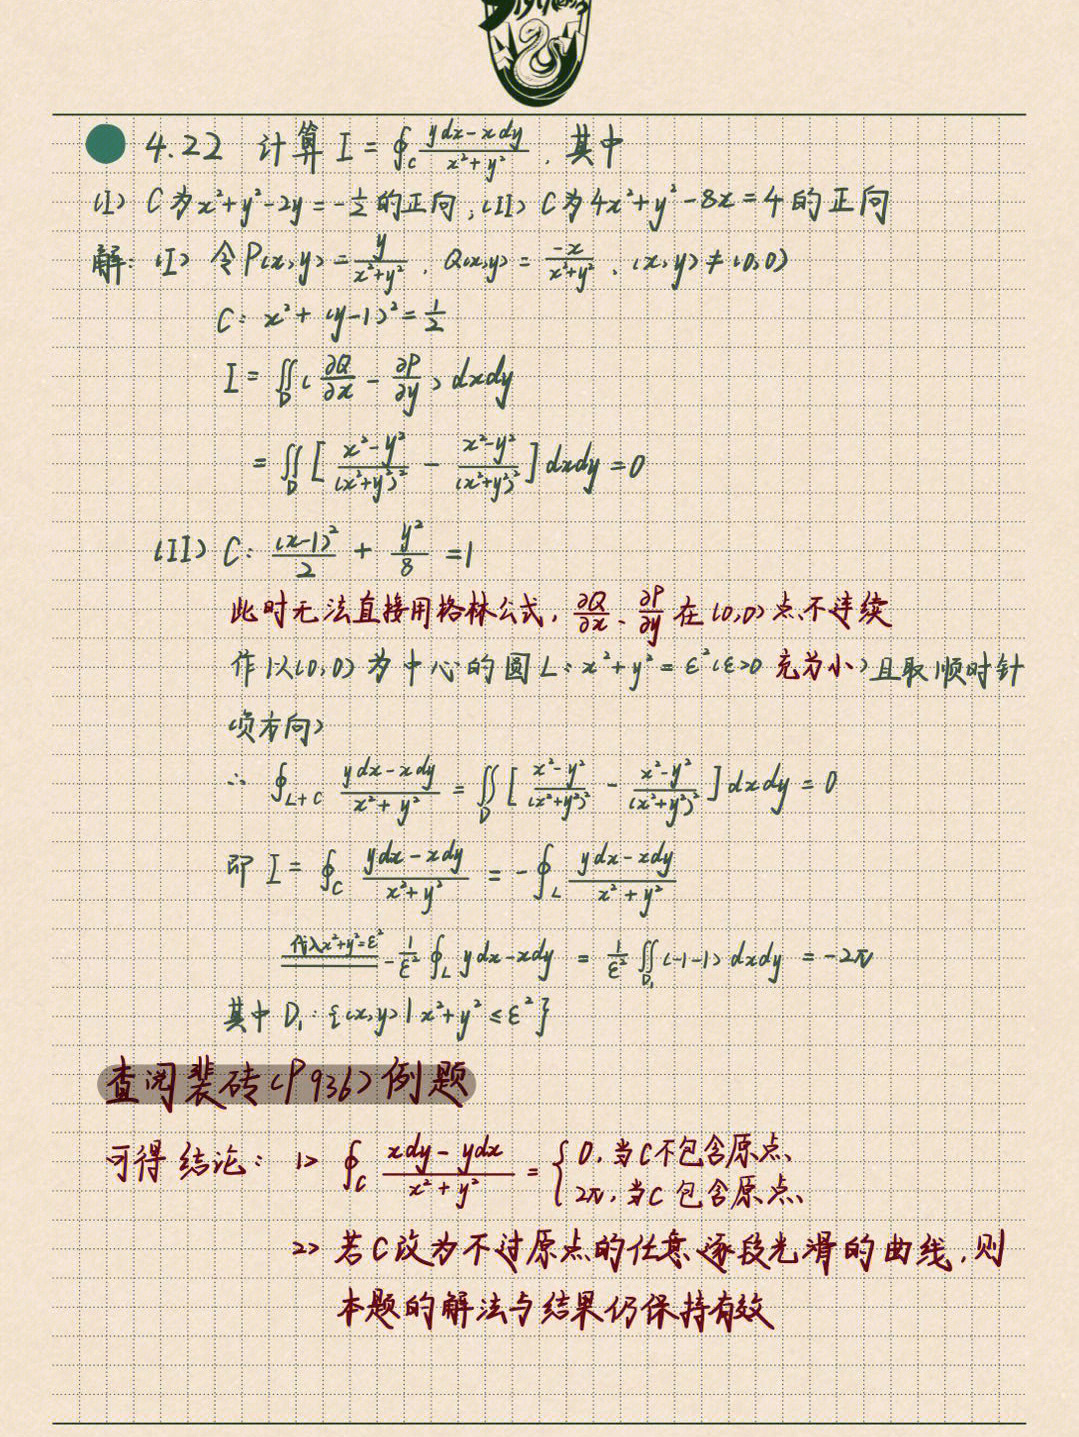 4.22 计算 I = ∮_C (ydx-xdy)/(x²+y²), 其中
(I) C为 x²+y²-2y = -1/2 的正向, (II) C为 4x²+y²-8x=4 的正向
解: (I) 令P(x,y) = y/(x²+y²), Q(x,y) = -x/(x²+y²), (x,y)≠(0,0)
C: x²+(y-1)²=1/2
I = ∬_D (∂Q/∂x - ∂P/∂y) dxdy
= ∬_D [(x²-y²)/(x²+y²)² - (x²-y²)/(x²+y²)²] dxdy = 0
(II) C: (x-1)²/2 + y²/8 = 1
此时无法直接用格林公式, ∂Q/∂x、∂P/∂y 在(0,0)点不连续
作以(0,0)为中心的圆L: x²+y²=ε²(ε>0 充为小)且取顺时针
(负方向)
∴ ∮_{L+C} (ydx-xdy)/(x²+y²) = ∬_D [(x²-y²)/(x²+y²)² - (x²-y²)/(x²+y²)²] dxdy = 0
即 I = ∮_C (ydx-xdy)/(x²+y²) = -∮_L (ydx-xdy)/(x²+y²)
代入x²+y²=ε² -1/ε² ∮_L ydx-xdy = 1/ε² ∬_{D₁} (-1-1) dxdy = -2π
其中 D₁: {(x,y)|x²+y²≤ε²}
查阅裴砖(P936)例题
可得结论: 1> ∮_C (xdy-ydx)/(x²+y²) = { 0, 当C不包含原点、
2π, 当C包含原点、
2> 若C改为不过原点的任意逐段光滑的曲线, 则
本题的解法与结果仍保持有效